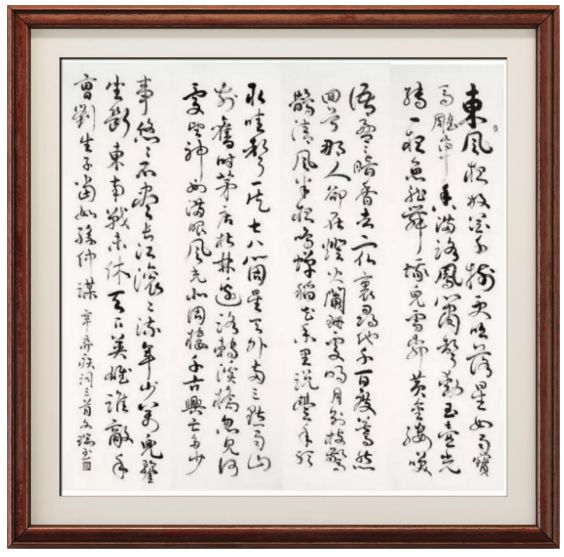 東風夜放花千樹更吹落星如雨寶
馬雕車香滿路鳳簫聲動玉壺光
轉一夜魚龍舞蛾兒雪柳黃金縷笑
語盈々暗香去眾裏尋他千百度驀然
回首那人卻在燈火闌珊處明月別枝驚
鵲清風半夜鳴蟬稻花香里說豐年聽
取蛙聲一片七八箇星天外兩三點雨山
前舊時茅店社林邊路轉溪橋忽見何
處望神州滿眼風光北固樓千古興亡多少
事悠々不盡長江滾々流年少萬兜鍪
坐斷東南戰未休天下英雄誰敵手
曹劉生子當如孫仲謀 辛棄疾詞三首文瑞書